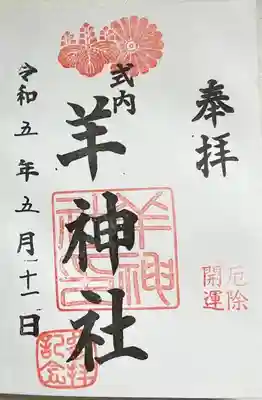 奉拝
厄除
開運
式内
羊神社
羊神社印
令和五年五月二十一日
参拝
記念